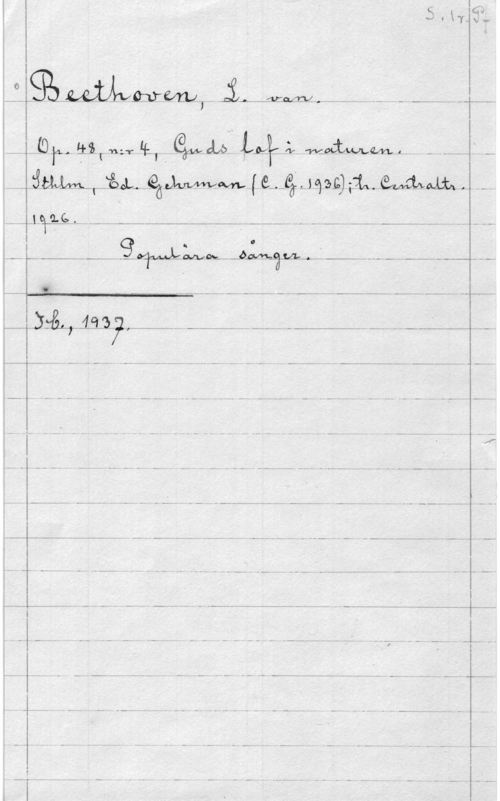 S. 1r. Pf
Beethoven, L. van.
Op. 48, n:r 4, Guds lof i naturen.
Sthlm, Ed. Gehrman (C. G. 1936); tr. Centraltr.
1926.
Populära sånger.
J.C., 1937.